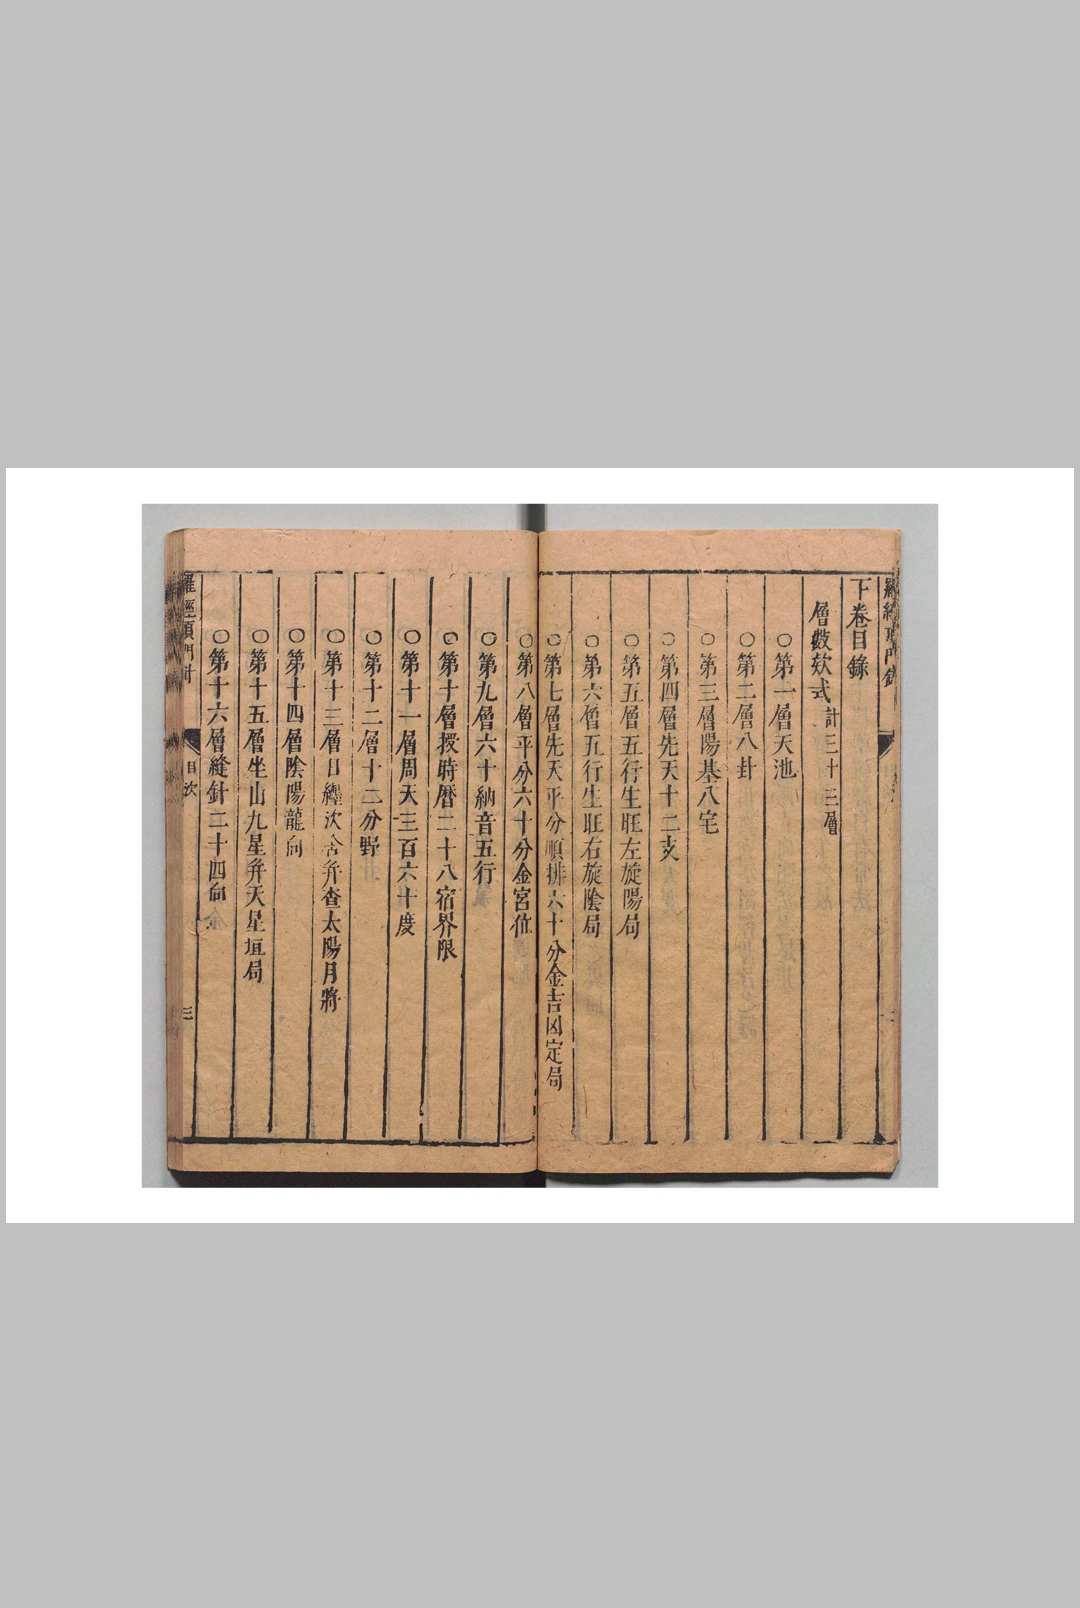 下卷目錄
層數欵式計三十三層
○第一層天池
○第二層八卦
○第三層陽基八宅
○第四層先天十二支
○第五層五行生旺左旋陽局
○第六層五行生旺右旋陰局
○第七層先天平分順排六十分金吉凶定局
○第八層平分六十分金宮位
○第九層六十納音五行
○第十層授時曆二十八宿界限
○第十一層周天三百六十度
○第十二層十二分野
○第十三層日纏次舍并查太陽月將
○第十四層陰陽龍向
○第十五層坐山九星并天星垣局
○第十六層縫針二十四向
羅經頂門針 目次 三